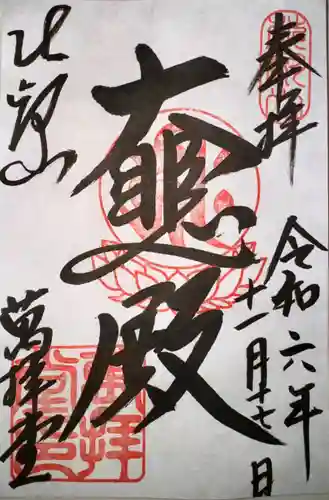 奉拝
令和六年
十一月十七日
大悲殿
比叡山
萬拝堂